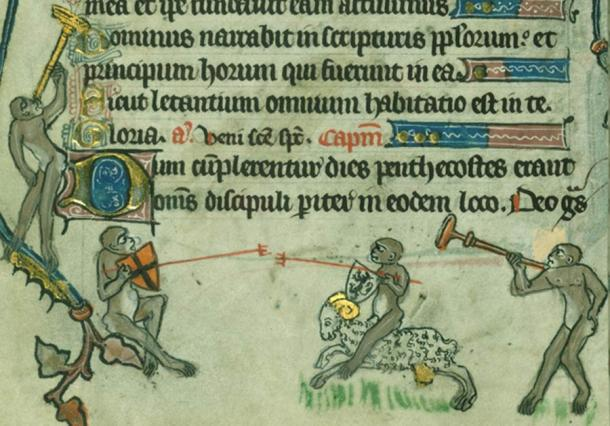 mea et ipe fundauit eam altissimus
Dominus narrabit in scripturis pplorum: et
principum horum qui fuerunt in ea
Sicut letantium omnium habitatio est in te.
Gloria. a. Veni sce sps. Capm
Dum cuplerentur dies penthecostes erant
omis discipuli piter in eodem loco. Deo gs